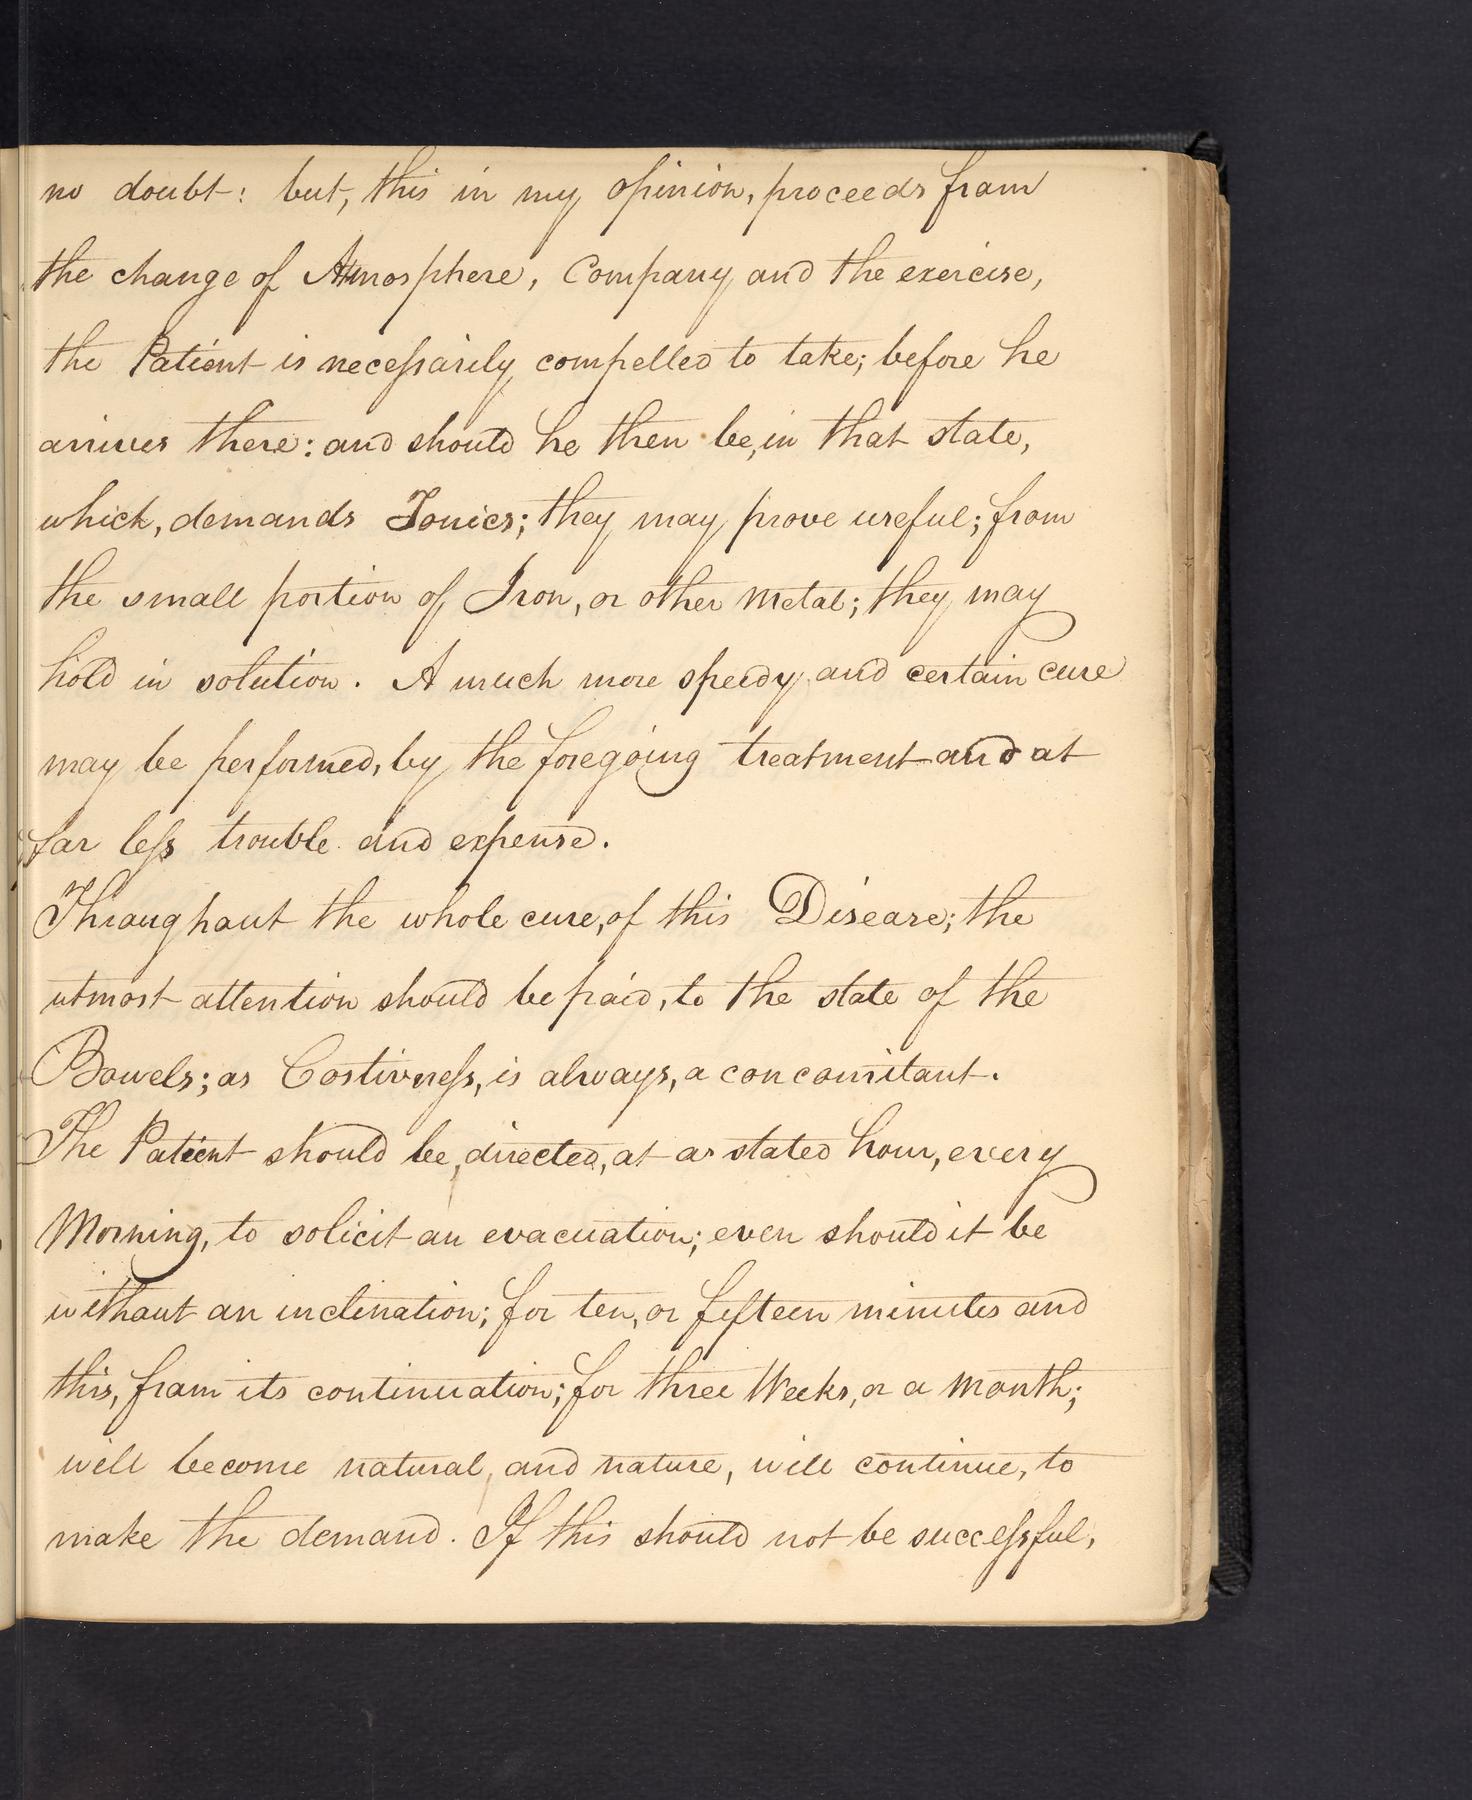 no doubt: but, this in my opinion, proceeds from
the change of Atmosphere, Company and the exercise,
the Patient is necessarily compelled to take; before he
arrives there: and should he then be, in that state,
which, demands Tonics; they may prove useful; from
the small portion of Iron, or other Metal; they may
hold in solution. A much more speedy and certain cure
may be performed, by the foregoing treatment and at
far less trouble and expense.
Throughout the whole cure, of this Disease; the
utmost attention should be paid, to the state of the
Bowels; as Costiveness, is always, a concomitant.
The Patient should be, directed, at as stated hour, every
Morning, to solicit an evacuation; even should it be
without an inclination; for ten, or fifteen minutes and
this, from its continuation; for three Weeks, or a Month;
will become natural, and nature, will continue, to
make the demand. If this should not be successful,